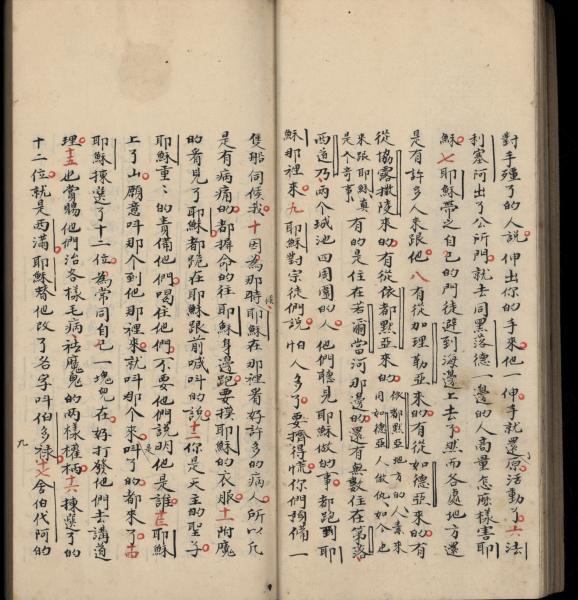 對手殭了的人說伸出你的手來他一伸手就還原活動了六法
利塞阿出了公所門就去同黑落德一邊的人商量怎麽樣害耶
穌七耶穌帶之自己的門徒避到海邊上去了然而各處地方還
是有許多人來跟他八有從加理勒亞來的有從如德亞來的有
從協露撒陵來的有從依都默亞來的依都默亞地方的人素來同如德亞人做仇如今也
來跟耶穌真是个奇事有的是住在若爾當河那邊的還有無數住在第落
西道乃兩个城池四周圍的人他們聽見耶穌做的事都跑到耶
穌那裡來九耶穌對宗徒們說怕人多了要擠得慌你們預備一
隻船伺候我十因為那時候耶穌在那裡看好許多的病人所以凡
是有病痛的都拚命的往耶穌身邊跑要摸耶穌的衣服十一附魔
的看見了耶穌都跪在耶穌跟前喊叫的說十二你是天主的聖子
耶穌重〻的責備他們喝住他們不要他們說明他是誰十三耶穌
上了山願意叫那个到他那裡來就叫那个來叫了是的都來了十四
耶穌揀選了十二位為常同自己一塊兒在好打發他們去講道
理十五也賞賜他們治各樣毛病祛魔鬼的兩樣權柄十六揀選了的
十二位就是西滿耶穌替他改了名字叫伯多祿十七舍伯代阿的
九